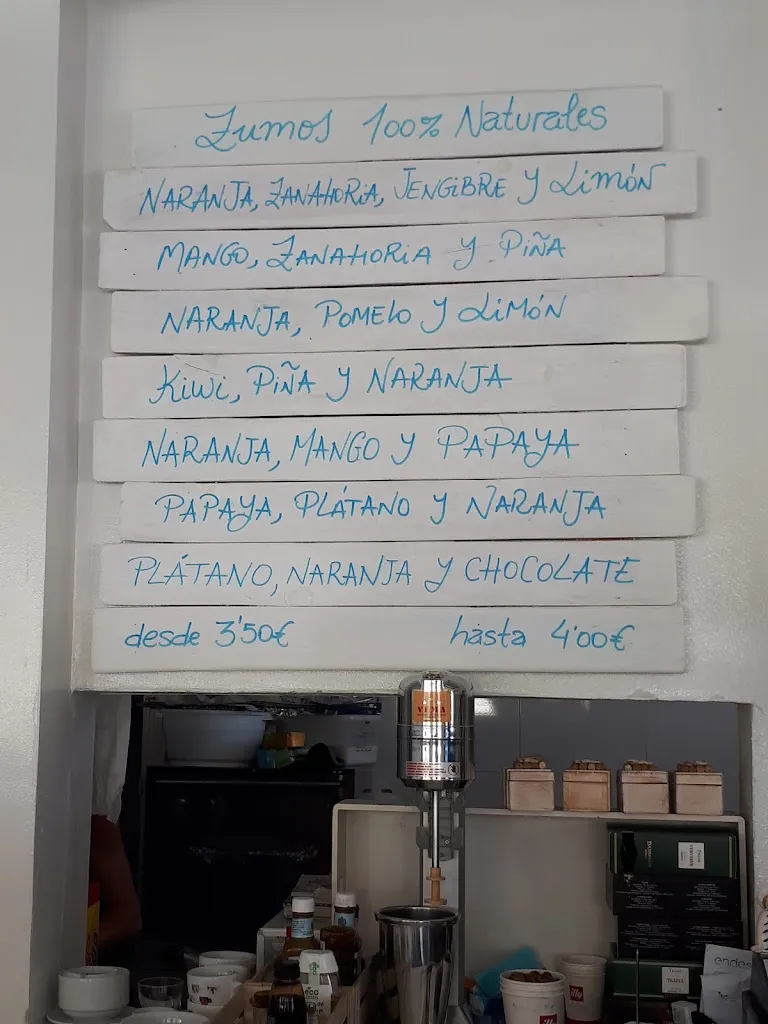 Zumos 100% Naturales
NARANJA, ZANAHORIA, JENGIBRE Y LIMÓN
MANGO, ZANAHORIA Y PIÑA
NARANJA, POMELO Y LIMÓN
KIWI, PIÑA Y NARANJA
NARANJA, MANGO Y PAPAYA
PAPAYA, PLÁTANO Y NARANJA
PLÁTANO, NARANJA Y CHOCOLATE
desde 3'50€ hasta 4'00€
illy
illy